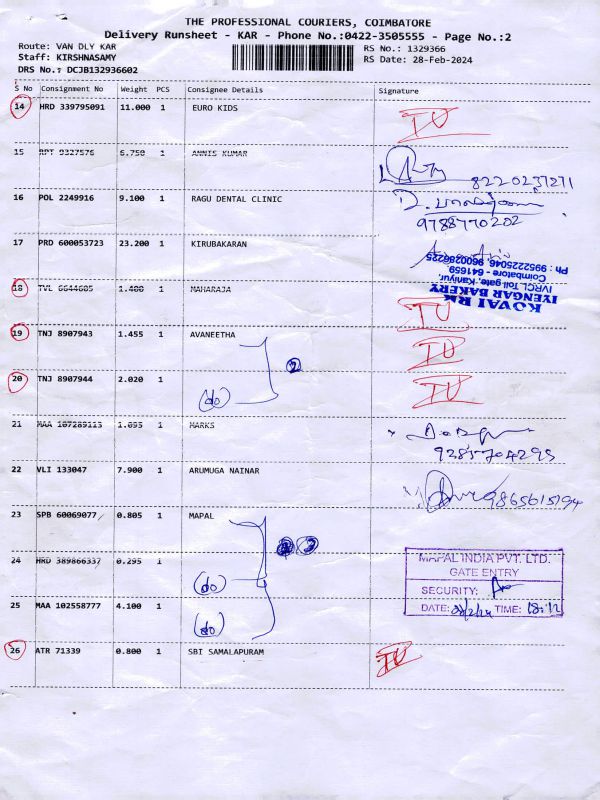 THE PROFESSIONAL COURIERS, COIMBATORE
Delivery Runsheet - KAR - Phone No.:0422-3505555 - Page No.:2
Route: VAN DLY KAR RS No.: 1329366
Staff: KIRSHNASAMY RS Date: 28-Feb-2024
DRS No.: DCJB132936602
S No Consignment No Weight PCS Consignee Details Signature
14 HRD 339795091 11.000 1 EURO KIDS
15 RPT 9327576 6.750 1 ANNIS KUMAR
8220237271
16 POL 2249916 9.100 1 RAGU DENTAL CLINIC
9788770202
17 PRD 600053723 23.200 1 KIRUBAKARAN
KOVAI RM
IYENGAR BAKERY
IVRCL Toll gate, Kaniyur,
Coimbatore - 641659.
Ph : 9952225046, 9600286225
18 TVL 6644605 1.400 1 MAHARAJA
19 TNJ 8907943 1.455 1 AVANEETHA
2
20 TNJ 8907944 2.020 1
(do)
21 MAA 107289113 1.695 1 HARKS
22 VLI 133047 7.900 1 ARUMUGA NAINAR
9865615194
23 SPB 60069077 0.805 1 MAPAL
3
24 HRD 389866337 0.295 1
(do)
MAPAL INDIA PVT. LTD.
GATE ENTRY
SECURITY:
DATE: 28/2/24 TIME: 18:12
25 MAA 102558777 4.100 1
(do)
26 ATR 71339 0.800 1 SBI SAMALAPURAM